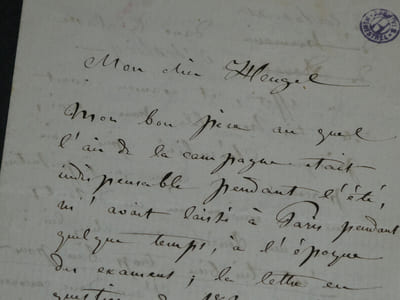 Mon cher Heugel
Mon bon père au quel
l'air de la campagne était
indispensable pendant l'été,
m'avait laissé à Paris pendant
quelque temps, à l'époque
des examens ; la lettre en
question